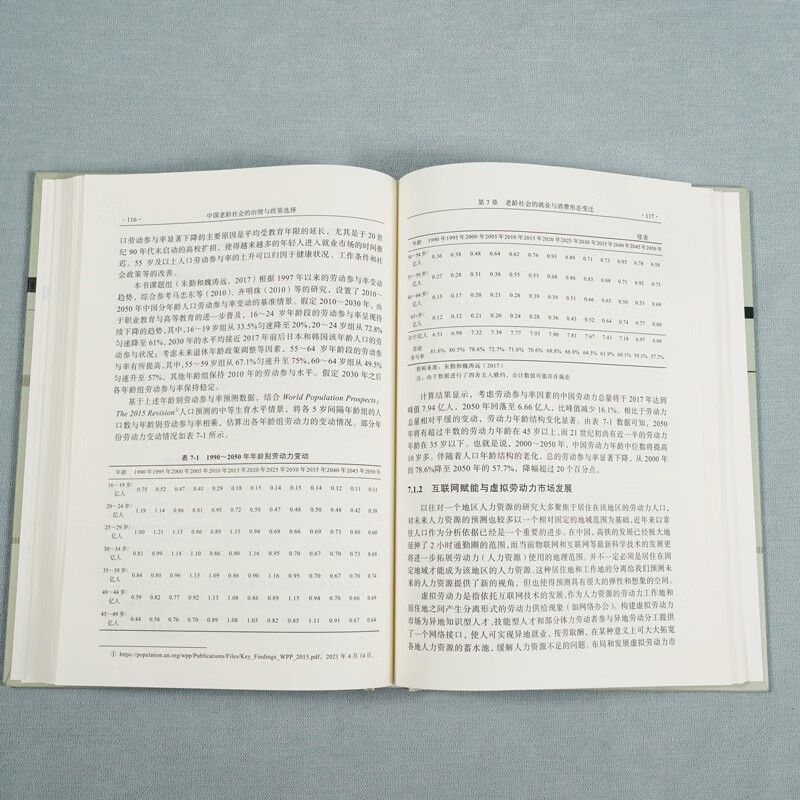 ·116· 中国老龄社会的治理与政策选择
口劳动参与率显著下降的主要原因是平均受教育年限的延长，尤其是于20世
纪90年代末启动的高校扩招，使得越来越多的年轻人进入就业市场的时间推
迟。55岁及以上人口劳动参与率的上升可以归因于健康状况、工作条件和社
会政策等的改善。
本书课题组（朱勤和魏涛远，2017）根据1997年以来的劳动参与率变动
趋势，综合参考马忠东等（2010）、齐明珠（2010）等的研究，设置了2010～
2050年中国分年龄人口劳动参与率变动的基准情景。假定2010～2030年，由
于职业教育与高等教育的进一步普及，16～24岁年龄段的劳动参与率呈现持
续下降的趋势，其中，16～19岁组从33.5%匀速降至20%，20～24岁组从72.8%
匀速降至61%，2030年的水平均接近2017年前后日本和韩国该年龄人口的劳
动参与状况；考虑未来退休年龄政策调整等因素，55～64岁年龄段的劳动参
与率有所提高，其中，55～59岁组从67.1%匀速升至75%，60～64岁组从49.5%
匀速升至57%，其他年龄组保持2010年的劳动参与水平。假定2030年之后
各年龄组劳动参与率保持稳定。
基于上述年龄别劳动参与率预测数据，结合World Population Prospects:
The 2015 Revision①人口预测的中等生育水平情景，将各5岁间隔年龄组的人
口数与年龄别劳动参与率相乘，估算出各年龄组劳动力的变动情况。部分年
份劳动力变动情况如表7-1所示。
表7-1 1990～2050年年龄别劳动力变动
年龄 1990年 1995年 2000年 2005年 2010年 2015年 2020年 2025年 2030年 2035年 2040年 2045年 2050年
16～19岁/亿人 0.75 0.52 0.47 0.41 0.29 0.18 0.15 0.14 0.15 0.14 0.12 0.11 0.11
20～24岁/亿人 1.19 1.14 0.86 0.81 0.95 0.72 0.50 0.47 0.48 0.50 0.48 0.42 0.38
25～29岁/亿人 1.00 1.21 1.13 0.86 0.89 1.13 0.94 0.69 0.66 0.69 0.73 0.69 0.60
30～34岁/亿人 0.81 0.99 1.18 1.10 0.86 0.90 1.16 0.95 0.70 0.67 0.70 0.73 0.69
35～39岁/亿人 0.84 0.80 0.96 1.15 1.09 0.86 0.90 1.16 0.95 0.70 0.67 0.70 0.74
40～44岁/亿人 0.59 0.82 0.77 0.92 1.13 1.08 0.86 0.89 1.15 0.94 0.70 0.66 0.69
45～49岁/亿人 0.44 0.56 0.76 0.70 0.89 1.08 1.03 0.82 0.85 1.11 0.91 0.67 0.64
① https://population.un.org/wpp/Publications/Files/Key_Findings_WPP_2015.pdf，2021年4月14日。
第7章 老龄社会的就业与消费形态变迁 ·117·
续表
年龄 1990年 1995年 2000年 2005年 2010年 2015年 2020年 2025年 2030年 2035年 2040年 2045年 2050年
50～54岁/亿人 0.36 0.38 0.48 0.64 0.62 0.76 0.93 0.89 0.71 0.73 0.95 0.78 0.58
55～59岁/亿人 0.27 0.28 0.31 0.38 0.55 0.53 0.68 0.86 0.85 0.68 0.71 0.92 0.75
60～64岁/亿人 0.15 0.17 0.20 0.21 0.28 0.39 0.39 0.51 0.66 0.63 0.50 0.53 0.69
65+岁/亿人 0.12 0.12 0.21 0.20 0.24 0.28 0.36 0.43 0.52 0.64 0.74 0.77 0.80
合计/亿人 6.51 6.98 7.32 7.39 7.77 7.93 7.90 7.81 7.67 7.41 7.18 6.97 6.66
劳动参与率 81.6% 80.5% 78.6% 72.7% 71.6% 70.6% 68.8% 66.8% 64.5% 61.9% 60.1% 59.1% 57.7%
资料来源：朱勤和魏涛远（2017）
注：由于数据进行了四舍五入修约，合计数值可能存在偏差
计算结果显示，考虑劳动参与率因素的中国劳动力总量将于2017年达到
峰值7.94亿人，2050年回落至6.66亿人，比峰值减少16.1%。相比于劳动力
总量相对平缓的变动，劳动力年龄结构变化显著。由表7-1数据可知，2050
年将有超过半数的劳动力年龄在45岁以上，而21世纪初尚有近一半的劳动力
年龄在35岁以下。也就是说，2000～2050年，中国劳动力年龄中位数将提高
10岁多。伴随着人口年龄结构的老化，总的劳动参与率显著下降，从2000年
的78.6%降至2050年的57.7%，降幅超过20个百分点。
7.1.2 互联网赋能与虚拟劳动力市场发展
以往对一个地区人力资源的研究大多聚焦于居住在该地区的劳动力人口，
对未来人力资源的预测也较多以一个相对固定的地域范围为基础，近年来以常
住人口作为分析依据已经是一个重要的进步。在中国，高铁的发展已经极大地
延伸了2小时通勤圈的范围，而当前物联网和互联网等最新科学技术的发展更
将进一步拓展劳动力（人力资源）使用的地理范围。并不一定必须是居住在固
定地域才能成为该地区的人力资源。这种居住地和工作地的分离给我们预测未
来的人力资源提供了新的视角，但也使得预测具有很大的弹性和想象的空间。
虚拟劳动力是指依托互联网技术的发展，作为人力资源的劳动力工作地和
居住地之间产生分离形式的劳动力供给现象（如网络办公）。构建虚拟劳动力
市场为异地知识型人才、技能型人才和部分体力劳动者参与异地劳动分工提供
了一个网络接口，使人可实现异地就业，按劳取酬，在某种意义上可大大拓宽
各地人力资源的蓄水池，缓解人力资源不足的问题。布局和发展虚拟劳动力市